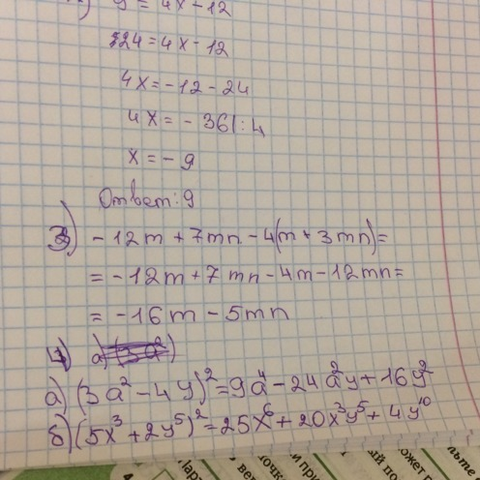 y = 4x - 12
24 = 4x - 12
4x = -12 - 24
4x = -36 | : 4
x = -9
Ответ: 9
3) -12m + 7mn - 4(m + 3mn) =
= -12m + 7mn - 4m - 12mn =
= -16m - 5mn
4)
а) (3a² - 4y)² = 9a⁴ - 24a²y + 16y²
б) (5x³ + 2y⁵)² = 25x⁶ + 20x³y⁵ + 4y¹⁰